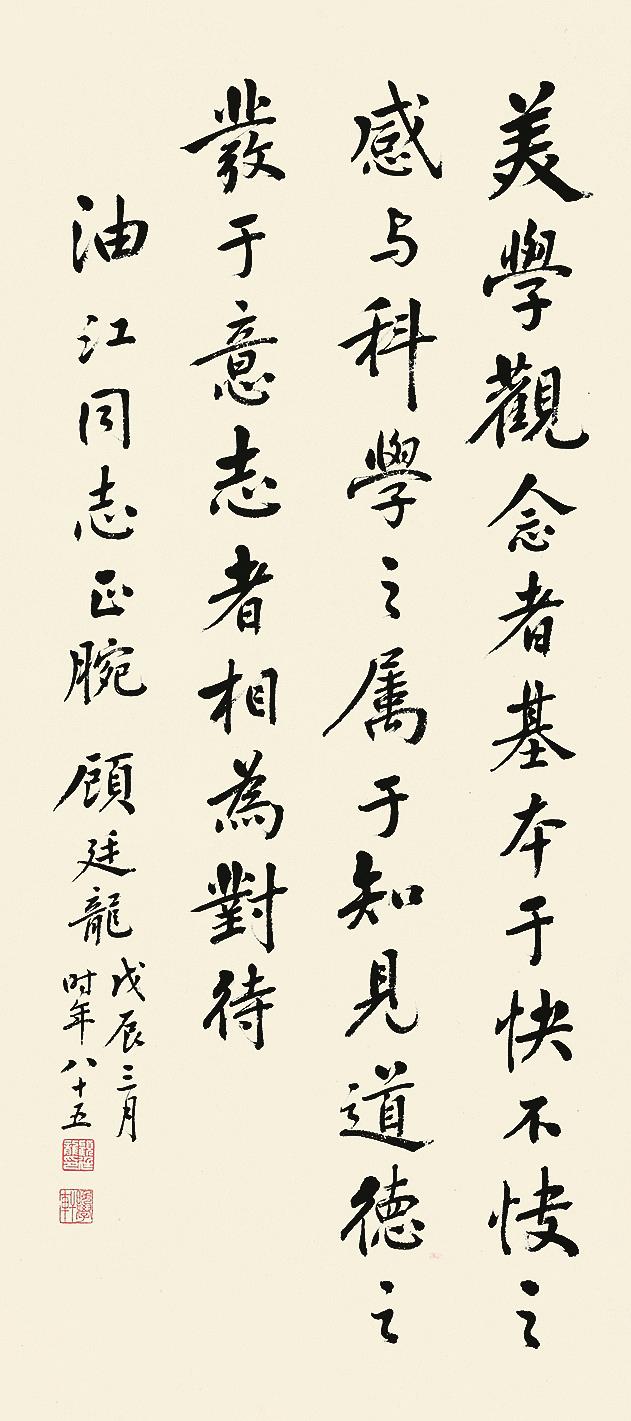 美學觀念者基本于快不快之
感与科學之属于知見道德之
發于意志者相為對待
油江同志正腕 顧廷龍
戊辰三月
时年八十五